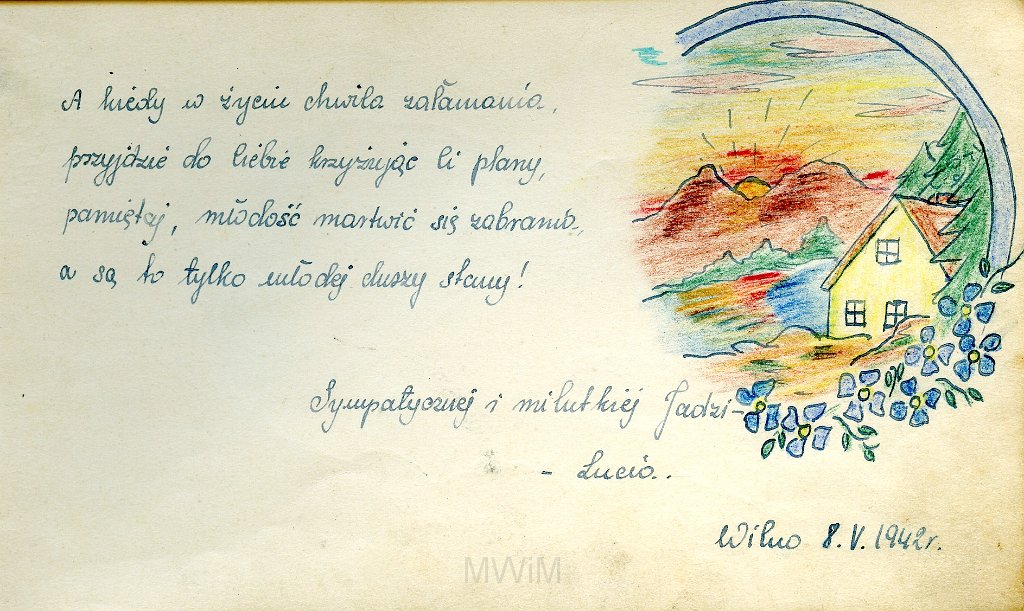 A kiedy w życiu chwila załamania,
przyjdzie do Ciebie krzyżując Ci plany,
pamiętaj, młodość martwić się zabrania,
a są to tylko młodej duszy stany!
Sympatycznej i milutkiej Jadzi-
- Lucia.
Wilno 8.V.1942r.
MWiM